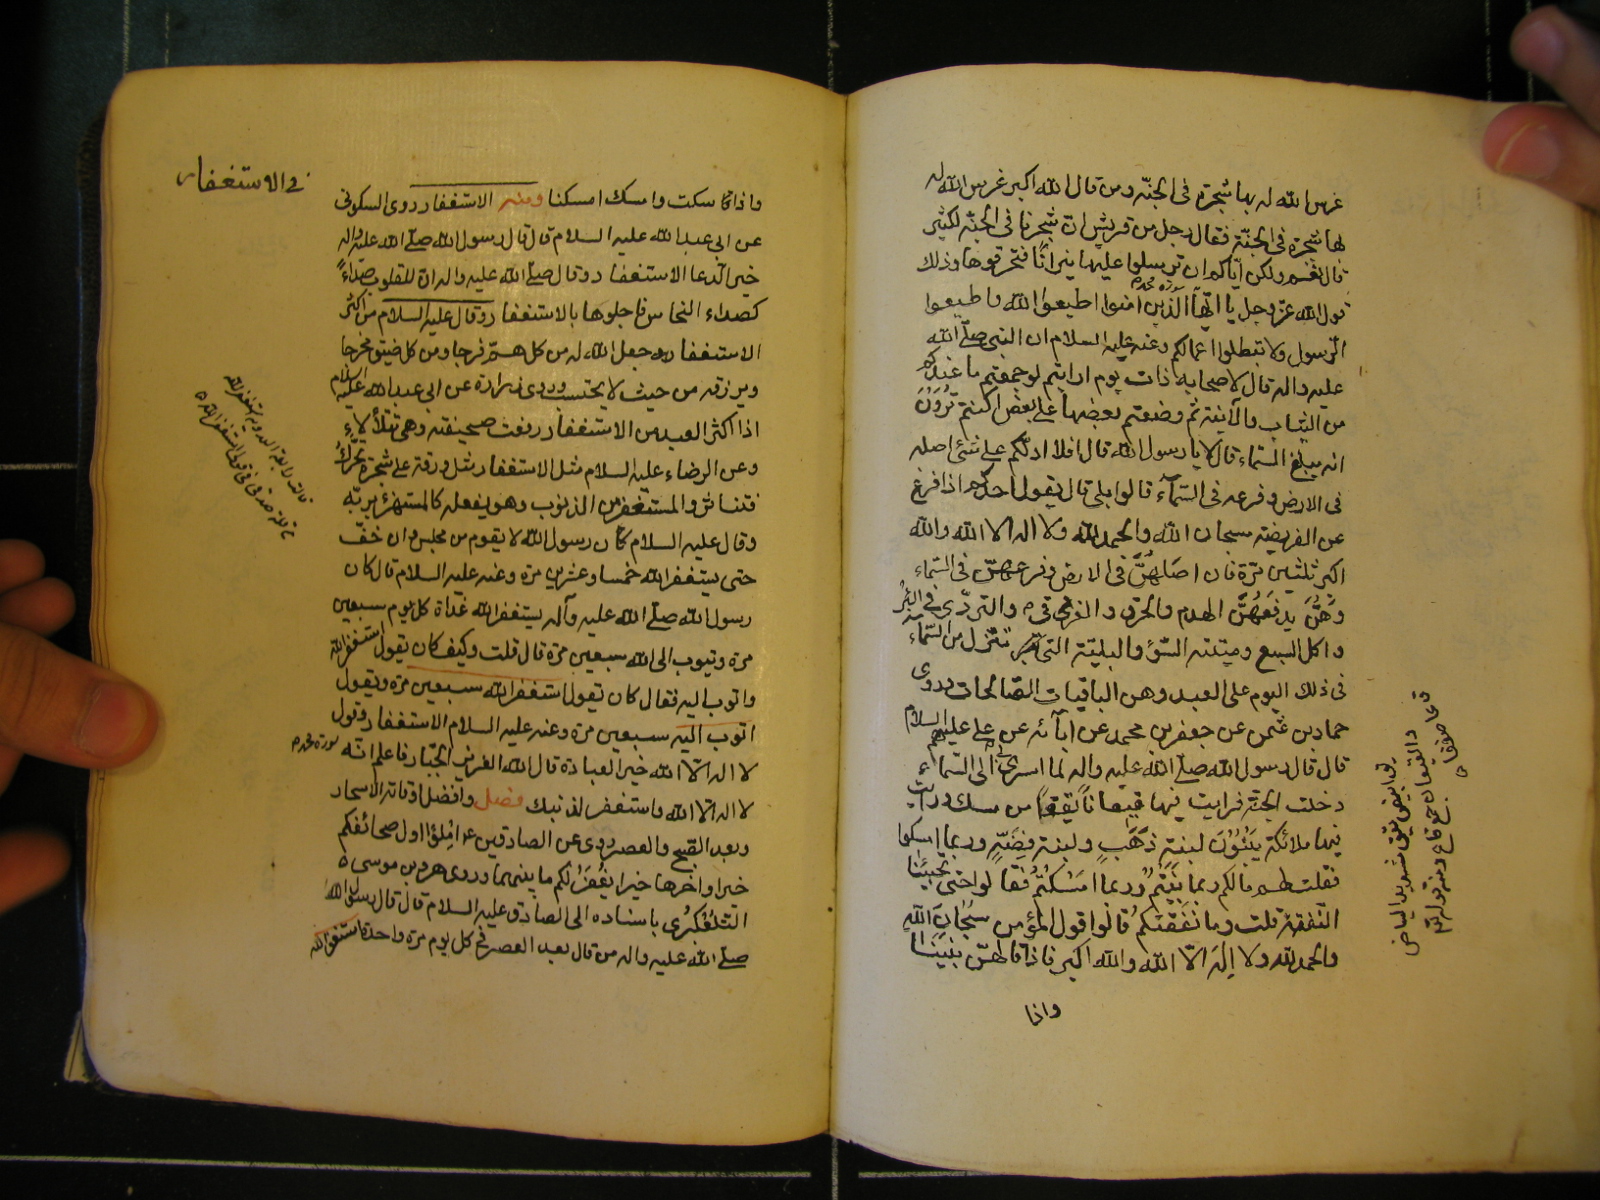 غرس الله له بها شجرة فى الجنة ومن قال الله اكبر غرس الله له
بها شجرة فى الجنة فقال رجل من قريش ان شجرنا فى الجنة لكثير
قال نعم ولكن اياكم ان ترسلوا عليها نيرانا فتحرقوها وذلك
قول الله عز وجل يا ايها الذين امنوا اطيعوا الله واطيعوا
سورة محمد
الرسول ولا تبطلوا اعمالكم وعنه عليه السلام ان النبى صلى الله
عليه واله قال لاصحابه ذات يوم ارايتم لو جمعتم ما عندكم
من الثياب والآنية ثم وضعتم بعضها على بعض اكنتم ترون
انه يبلغ السماء قالوا لا يا رسول الله قال افلا ادلكم على شئ اصله
فى الارض وفرعه فى السماء قالوا بلى قال يقول احدكم اذا فرغ
عن الفريضة سبحان الله والحمد لله ولا اله الا الله والله
اكبر ثلثين مرة فان اصلهن فى الارض وفرعهن فى السماء
وهن يدفعهن الهدم والحرق والغرق والتردى فى البئر
واكل السبع وميتة السوء والبلية التى تنزل من السماء
فى ذلك اليوم على العبد وهن الباقيات الصالحات وروى
حماد بن عثمن عن جعفر بن محمد عن ابائه عن على عليهم السلام
قال قال رسول الله صلى الله عليه واله لما اسرى بى الى السماء
دخلت الجنة فرايت فيها قيعانا يققا من مسك ورايت
فيها ملائكة يبنون لبنة ذهب ولبنة فضة وربما امسكوا
فقلت لهم ما لكم ربما بنيتم وربما امسكتم فقالوا حتى تجيئنا
النفقة قلت وما نفقتكم قالوا قول المؤمن سبحان الله
والحمد لله ولا اله الا الله والله اكبر فاذا قالهن بنينا
واذا
فى الاستغفار
واذا سكت وامسك امسكنا ومنه الاستغفار روى السكونى
عن ابى عبد الله عليه السلام قال قال رسول الله صلى الله عليه واله
خير الدعا الاستغفار وقال صلى الله عليه واله ان للقلوب صداء
كصداء النحاس فاجلوها بالاستغفار وقال عليه السلام من اكثر
الاستغفار جعل الله له من كل هم فرجا ومن كل ضيق مخرجا
ويرزقه من حيث لا يحتسب وروى زرارة عن ابى عبد الله عليه السلام
اذا اكثر العبد من الاستغفار رفعت صحيفته وهى تتلألأ
وعن الرضاء عليه السلام مثل الاستغفار مثل ورقة على شجرة تحرك
فتناثر والمستغفر من الذنوب وهو يفعله كالمستهزئ بربه
وقال عليه السلام كان رسول الله لا يقوم من مجلس وان خف
حتى يستغفر الله خمسا وعشرين مرة وعنه عليه السلام قال كان
رسول الله صلى الله عليه وآله يستغفر الله غداة كل يوم سبعين
مرة ويتوب الى الله سبعين مرة قال قلت وكيف كان يقول استغفر الله
واتوب اليه فقال كان يقول استغفر الله سبعين مرة ويقول
اتوب اليه سبعين مرة وعنه عليه السلام الاستغفار وقول
لا اله الا الله خير العبادة قال الله العزيز الجبار فاعلم انه
سورة محمد
لا اله الا الله واستغفر لذنبك فصل وافضل اوقاته الاسحار
وبعد الصبح والعصر روى عن الصادقين املؤا اول صحائفكم
خيرا واخرها خيرا يغفر لكم ما بينهما وروى هرون بن موسى
التلعكبرى باسناده الى الصادق عليه السلام قال قال رسول الله
صلى الله عليه واله من قال بعد العصر فى كل يوم مرة واحدة استغفر الله